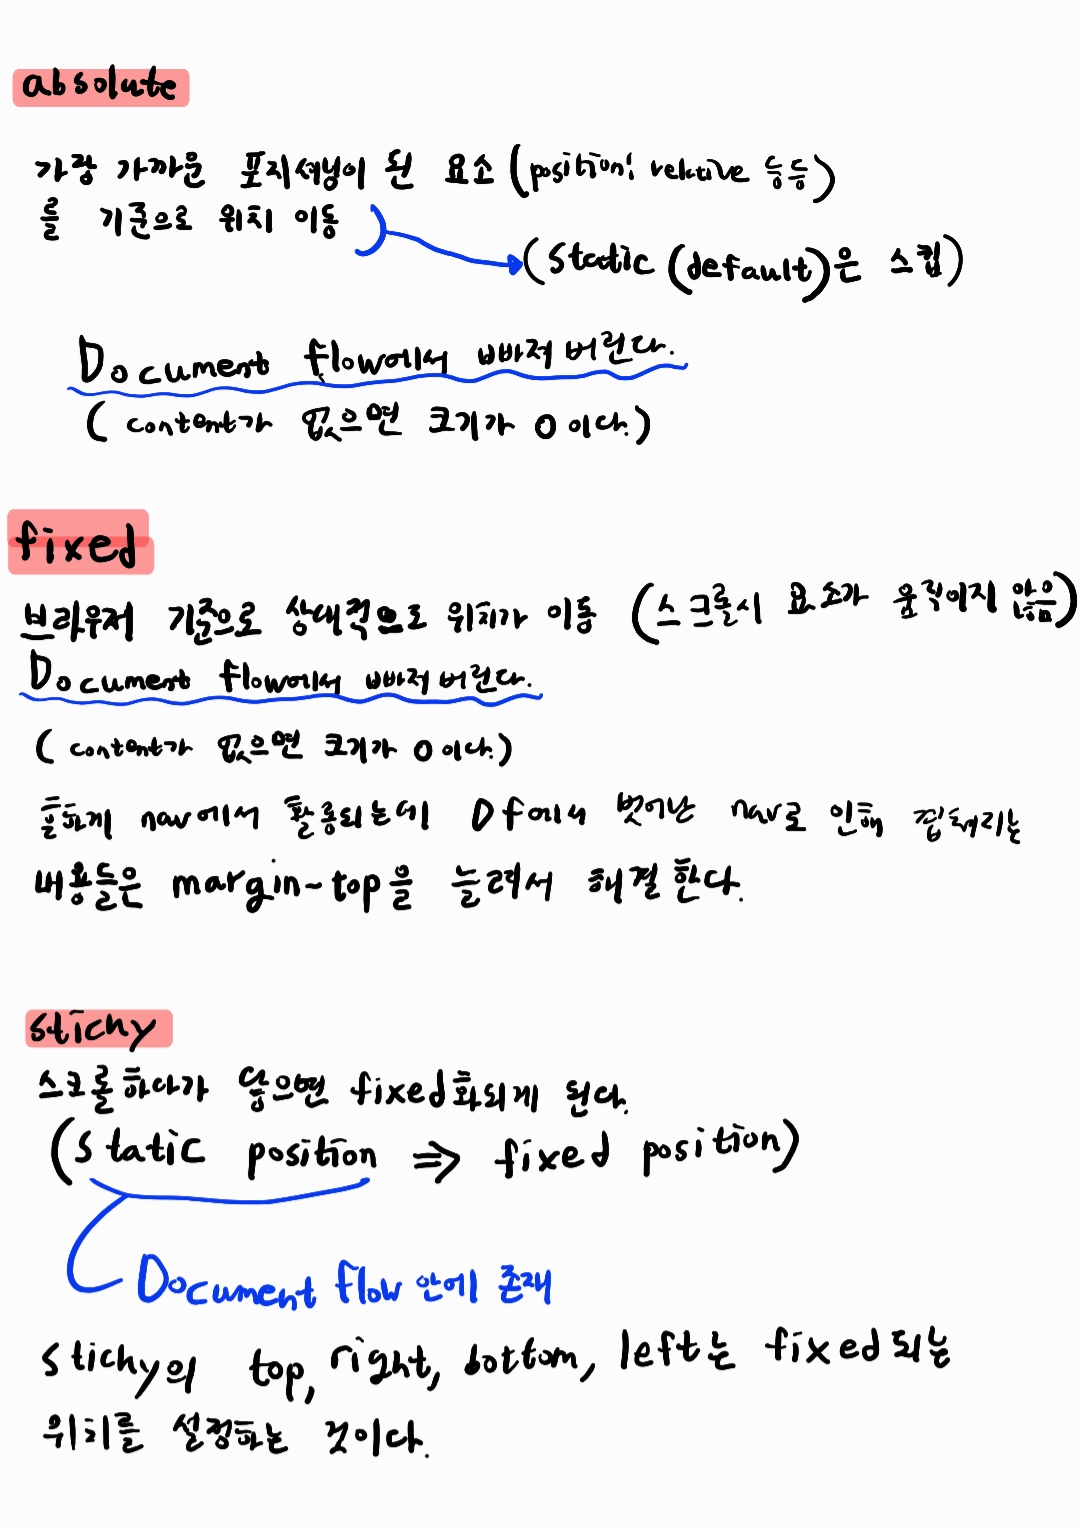 absolute
가장 가까운 포지셔닝이 된 요소 (position: relative 등등)
를 기준으로 위치 이동
(static (default)은 스킵)
Document flow에서 빠져 버린다.
(content가 없으면 크기가 0이다.)
fixed
브라우저 기준으로 상대적으로 위치가 이동 (스크롤시 요소가 움직이지 않음)
Document flow에서 빠져 버린다.
(content가 없으면 크기가 0이다.)
흔하게 nav에서 활용되는데 Df에서 벗어난 nav로 인해 겹쳐지는
내용들은 margin-top을 늘려서 해결한다.
stichy
스크롤하다가 닿으면 fixed화되게 된다.
(static position ⇒ fixed position)
Document flow 안에 존재
stichy의 top, right, bottom, left는 fixed되는
위치를 설정하는 것이다.